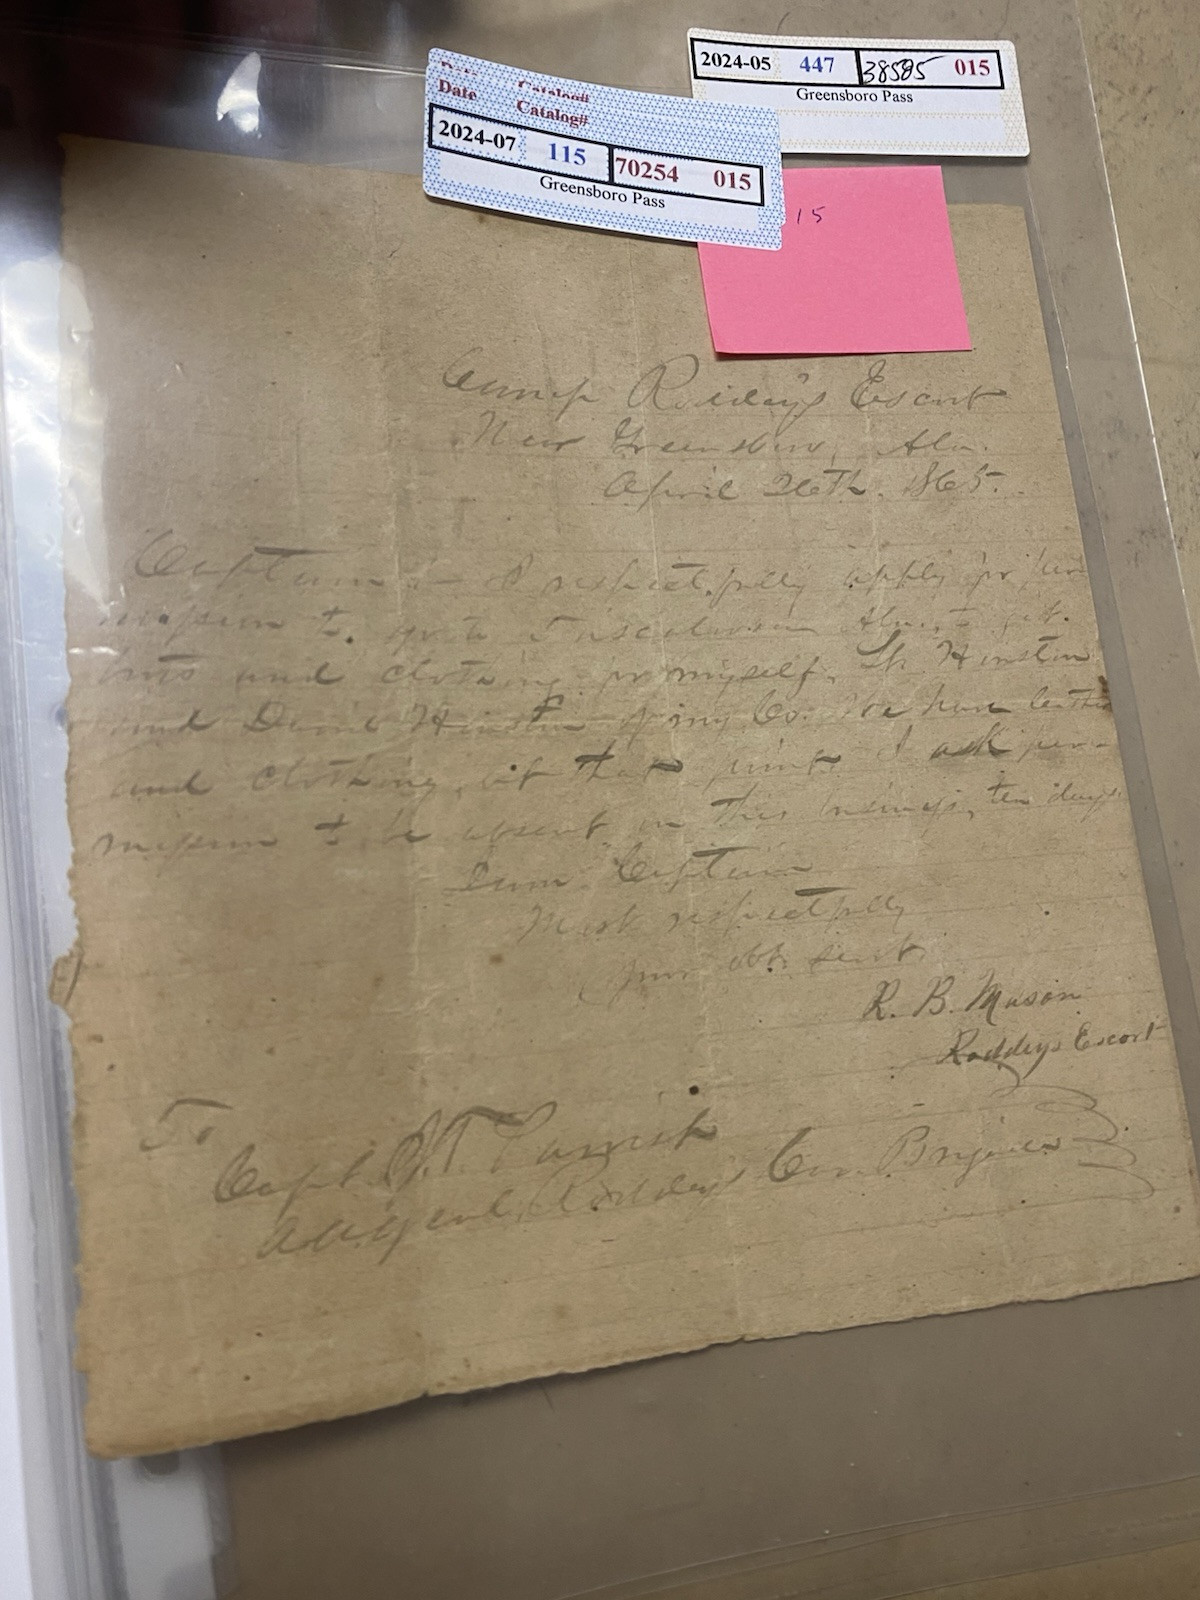 2024-05 447 38585 015
Greensboro Pass
Date Catalog#
Date Catalog#
2024-07 115 70254 015
Greensboro Pass
15
Camp Roddeys Escort
Near Greensboro, Ala.
April 26th. 1865.
Captain I respectfully apply for per
mission to go to Tuscaloosa Ala., to get
boots and clothing for myself, Lt. Hinston
and David Hinston of my Co. We have leather
and clothing, at that point. I ask per-
mission to be absent on this business, ten days
I am Captain
Most respectfully
your obt. servt.
R. B. Mason
Roddeys Escort
To
Capt. J. T.
A A Genl, Roddeys Cav. Brigade